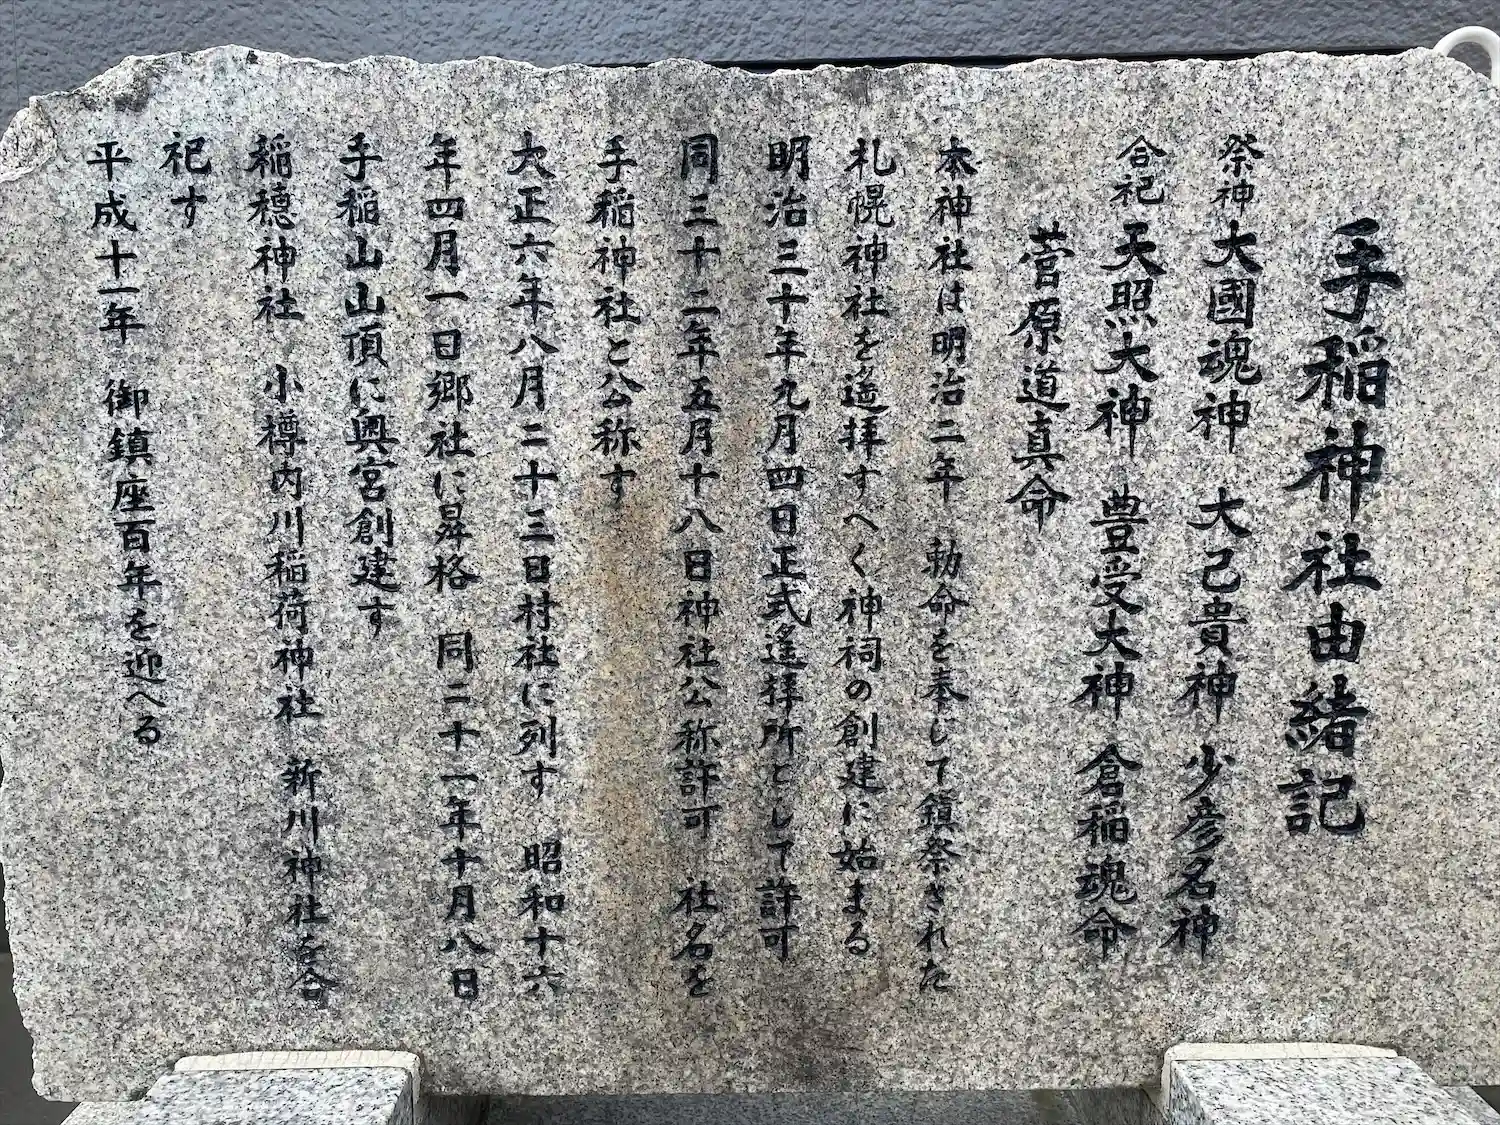 手稲神社由緒記
祭神 大國魂神 大己貴神 少彦名神
合祀 天照大神 豊受大神 倉稲魂命
菅原道真命
本神社は明治二年 勅命を奉じて鎮祭された
札幌神社を遥拝すへく神祠の創建に始まる
明治三十年九月四日正式遙拝所として許可
同三十二年五月十八日神社公称許可 社名を
手稲神社と公称す
大正六年八月二十三日村社に列す 昭和十六
年四月一日郷社に昇格 同二十一年十月八日
手稲山山頂に奥宮創建す
稲穂神社 小樽内川稲荷神社 新川神社を合
祀す
平成十一年 御鎮座百年を迎へる